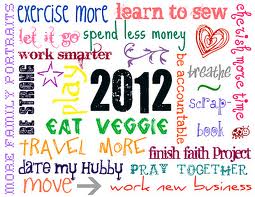 exercise more
learn to sew
let it go
spend less money
cherish more time
work smarter
MORE FAMILY PORTRAITS
BE STRONG
play
2012
be accountable
breathe
~ scrap-
book
EAT VEGGIE
TRAVEL MORE
finish faith Project
date my Hubby
PRAY TOGETHER
move → work new business